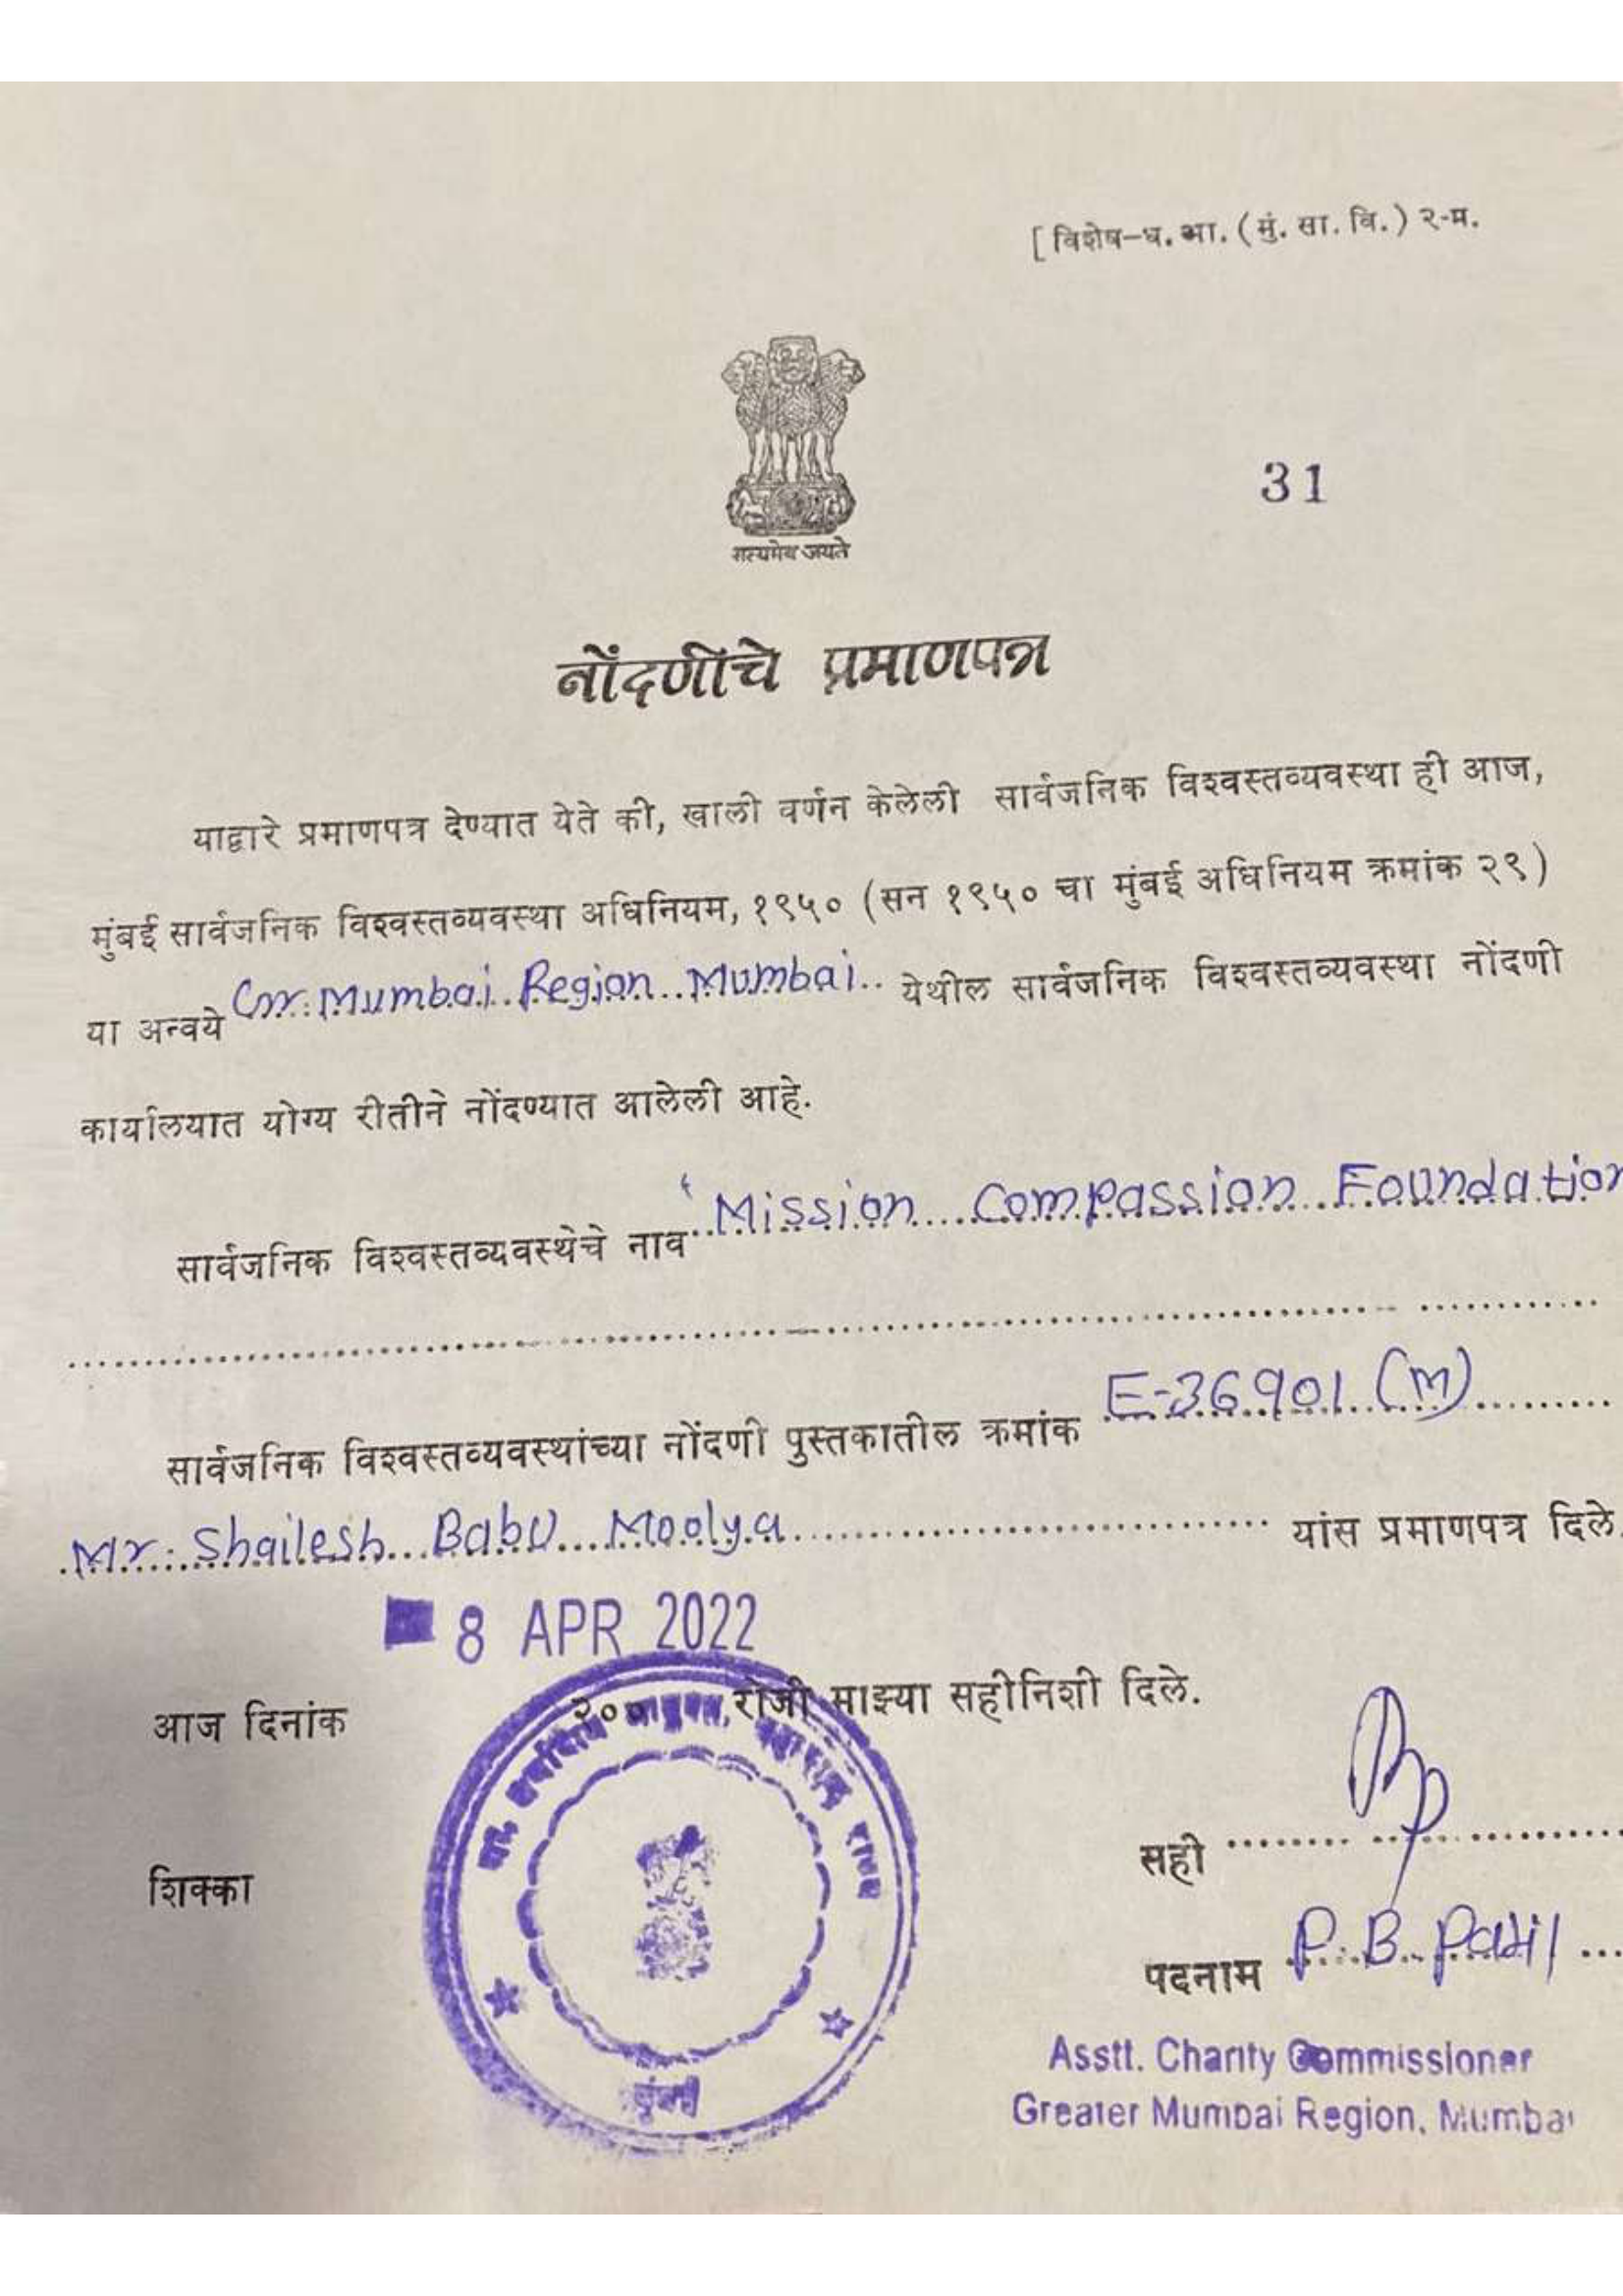 [ विशेष-ध. आ. (मुं. सा. वि.) २-म.
31
सत्यमेव जयते
नोंदणीचे प्रमाणपत्र
याद्वारे प्रमाणपत्र देण्यात येते की, खाली वर्णन केलेली सार्वजनिक विश्वस्तव्यवस्था ही आज,
मुंबई सार्वजनिक विश्वस्तव्यवस्था अधिनियम, १९५० (सन १९५० चा मुंबई अधिनियम क्रमांक २९)
या अन्वये Gr. Mumbai Region Mumbai येथील सार्वजनिक विश्वस्तव्यवस्था नोंदणी
कार्यालयात योग्य रीतीने नोंदण्यात आलेली आहे.
सार्वजनिक विश्वस्तव्यवस्थेचे नाव “Mission Compassion Foundation
सार्वजनिक विश्वस्तव्यवस्थांच्या नोंदणी पुस्तकातील क्रमांक E-36901 (M)
Mr. Shailesh Babu Moolya यांस प्रमाणपत्र दिले.
8 APR 2022
आज दिनांक २०० रोजी माझ्या सहीनिशी दिले.
शिक्का
मुंबई
सही
पदनाम P. B. Patil
Asstt. Charity Commissioner
Greater Mumbai Region, Mumbai